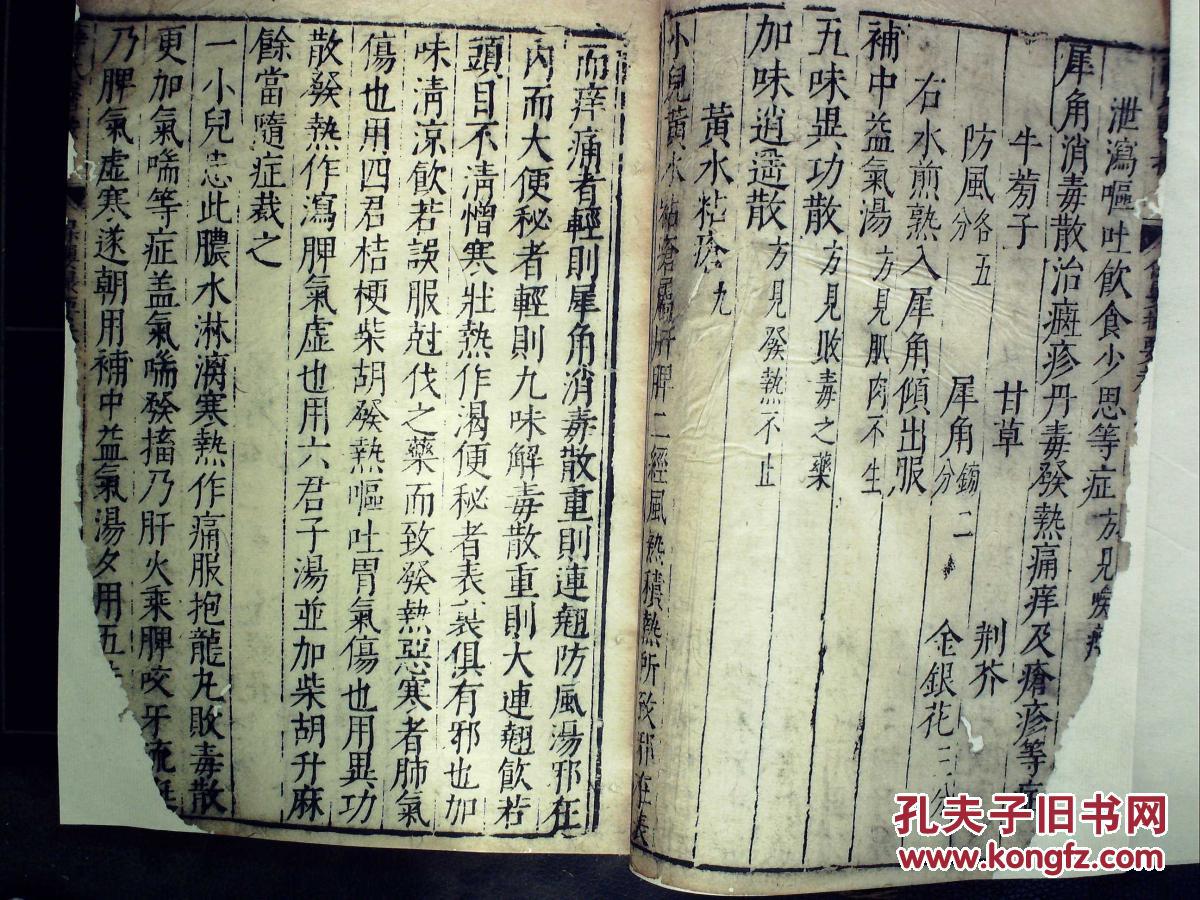 泄瀉嘔吐飲食少思等症方見喉
犀角消毒散治癍疹丹毒發熱痛痒及瘡疹等
牛蒡子 甘草 荆芥
防風各五分 犀角鎊二分 金銀花三分
右水煎熟入犀角傾出服
補中益氣湯方見肌肉不生
五味異功散方見敗毒之藥
加味逍遥散方見發熱不止
黃水粘瘡九
小兒黃水粘瘡屬肝脾二經風熱積熱所致邪在表
而痒痛者輕則犀角消毒散重則連翹防風湯邪在
内而大便秘者輕則九味解毒散重則大連翹飲若
頭目不清憎寒壯熱作渴便秘者表裏俱有邪也加
味清凉飲若誤服尅伐之藥而致發熱惡寒者肺氣
傷也用四君桔梗柴胡發熱嘔吐胃氣傷也用異功
散發熱作瀉脾氣虚也用六君子湯並加柴胡升麻
餘當隨症裁之
一小兒患此膿水淋漓寒熱作痛服抱龍丸敗毒散
更加氣喘等症盖氣喘發搐乃肝火乘脾咬牙流涎
乃脾氣虚寒遂朝用補中益氣湯夕用五
孔夫子旧书网
www.kongfz.com